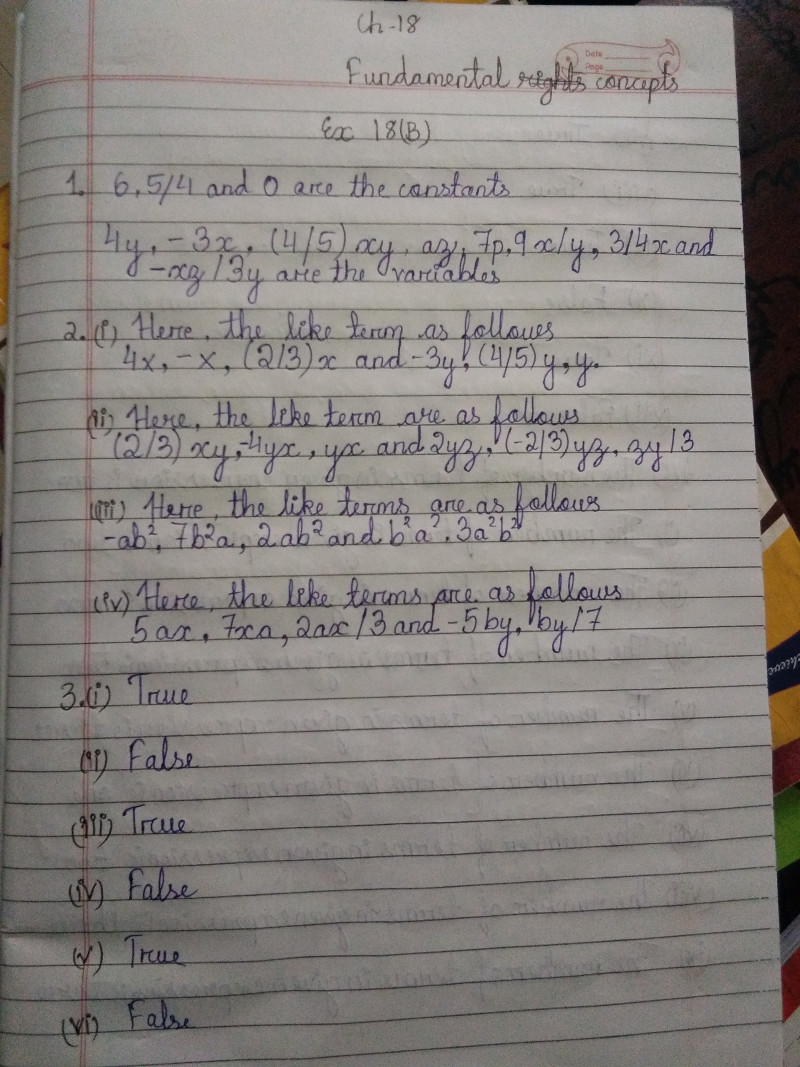 Ch-18
Date
Page
Fundamental rights concepts
Ex 18(B)
1. 6, 5/4 and 0 are the constants
4y, -3x, (4/5) xy, az, 7p, 9x/y, 3/4x and
-xz/3y are the variables
2. (i) Here, the like term as follows
4x, -x, (2/3)x and -3y, (4/5)y, y.
(ii) Here, the like term are as follows
(2/3) xy, -4yx, yx and 2yz, (-2/3)yz, zy/3
(iii) Here, the like terms are as follows
-ab², 7b²a, 2ab² and b²a², 3a²b²
(iv) Here, the like terms are as follows
5ax, 7xa, 2ax/3 and -5by, by/7
3. (i) True
(ii) False
(iii) True
(iv) False
(v) True
(vi) False